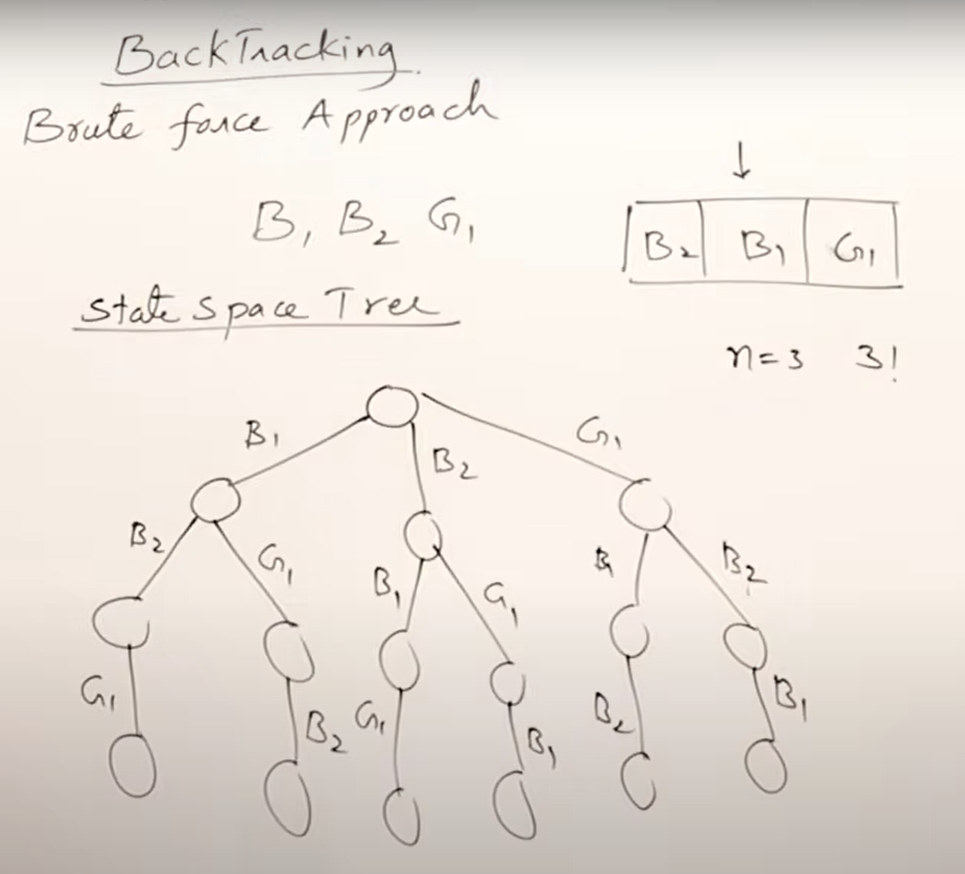 BackTracking
Brute force Approach
↓
B₁ B₂ G₁
B₂ B₁ G₁
State Space Tree
n=3 3!
B₁ B₂ G₁
B₂ G₁ B₁ G₁ B₁ B₂
G₁ B₂ G₁ B₁ B₂ B₁